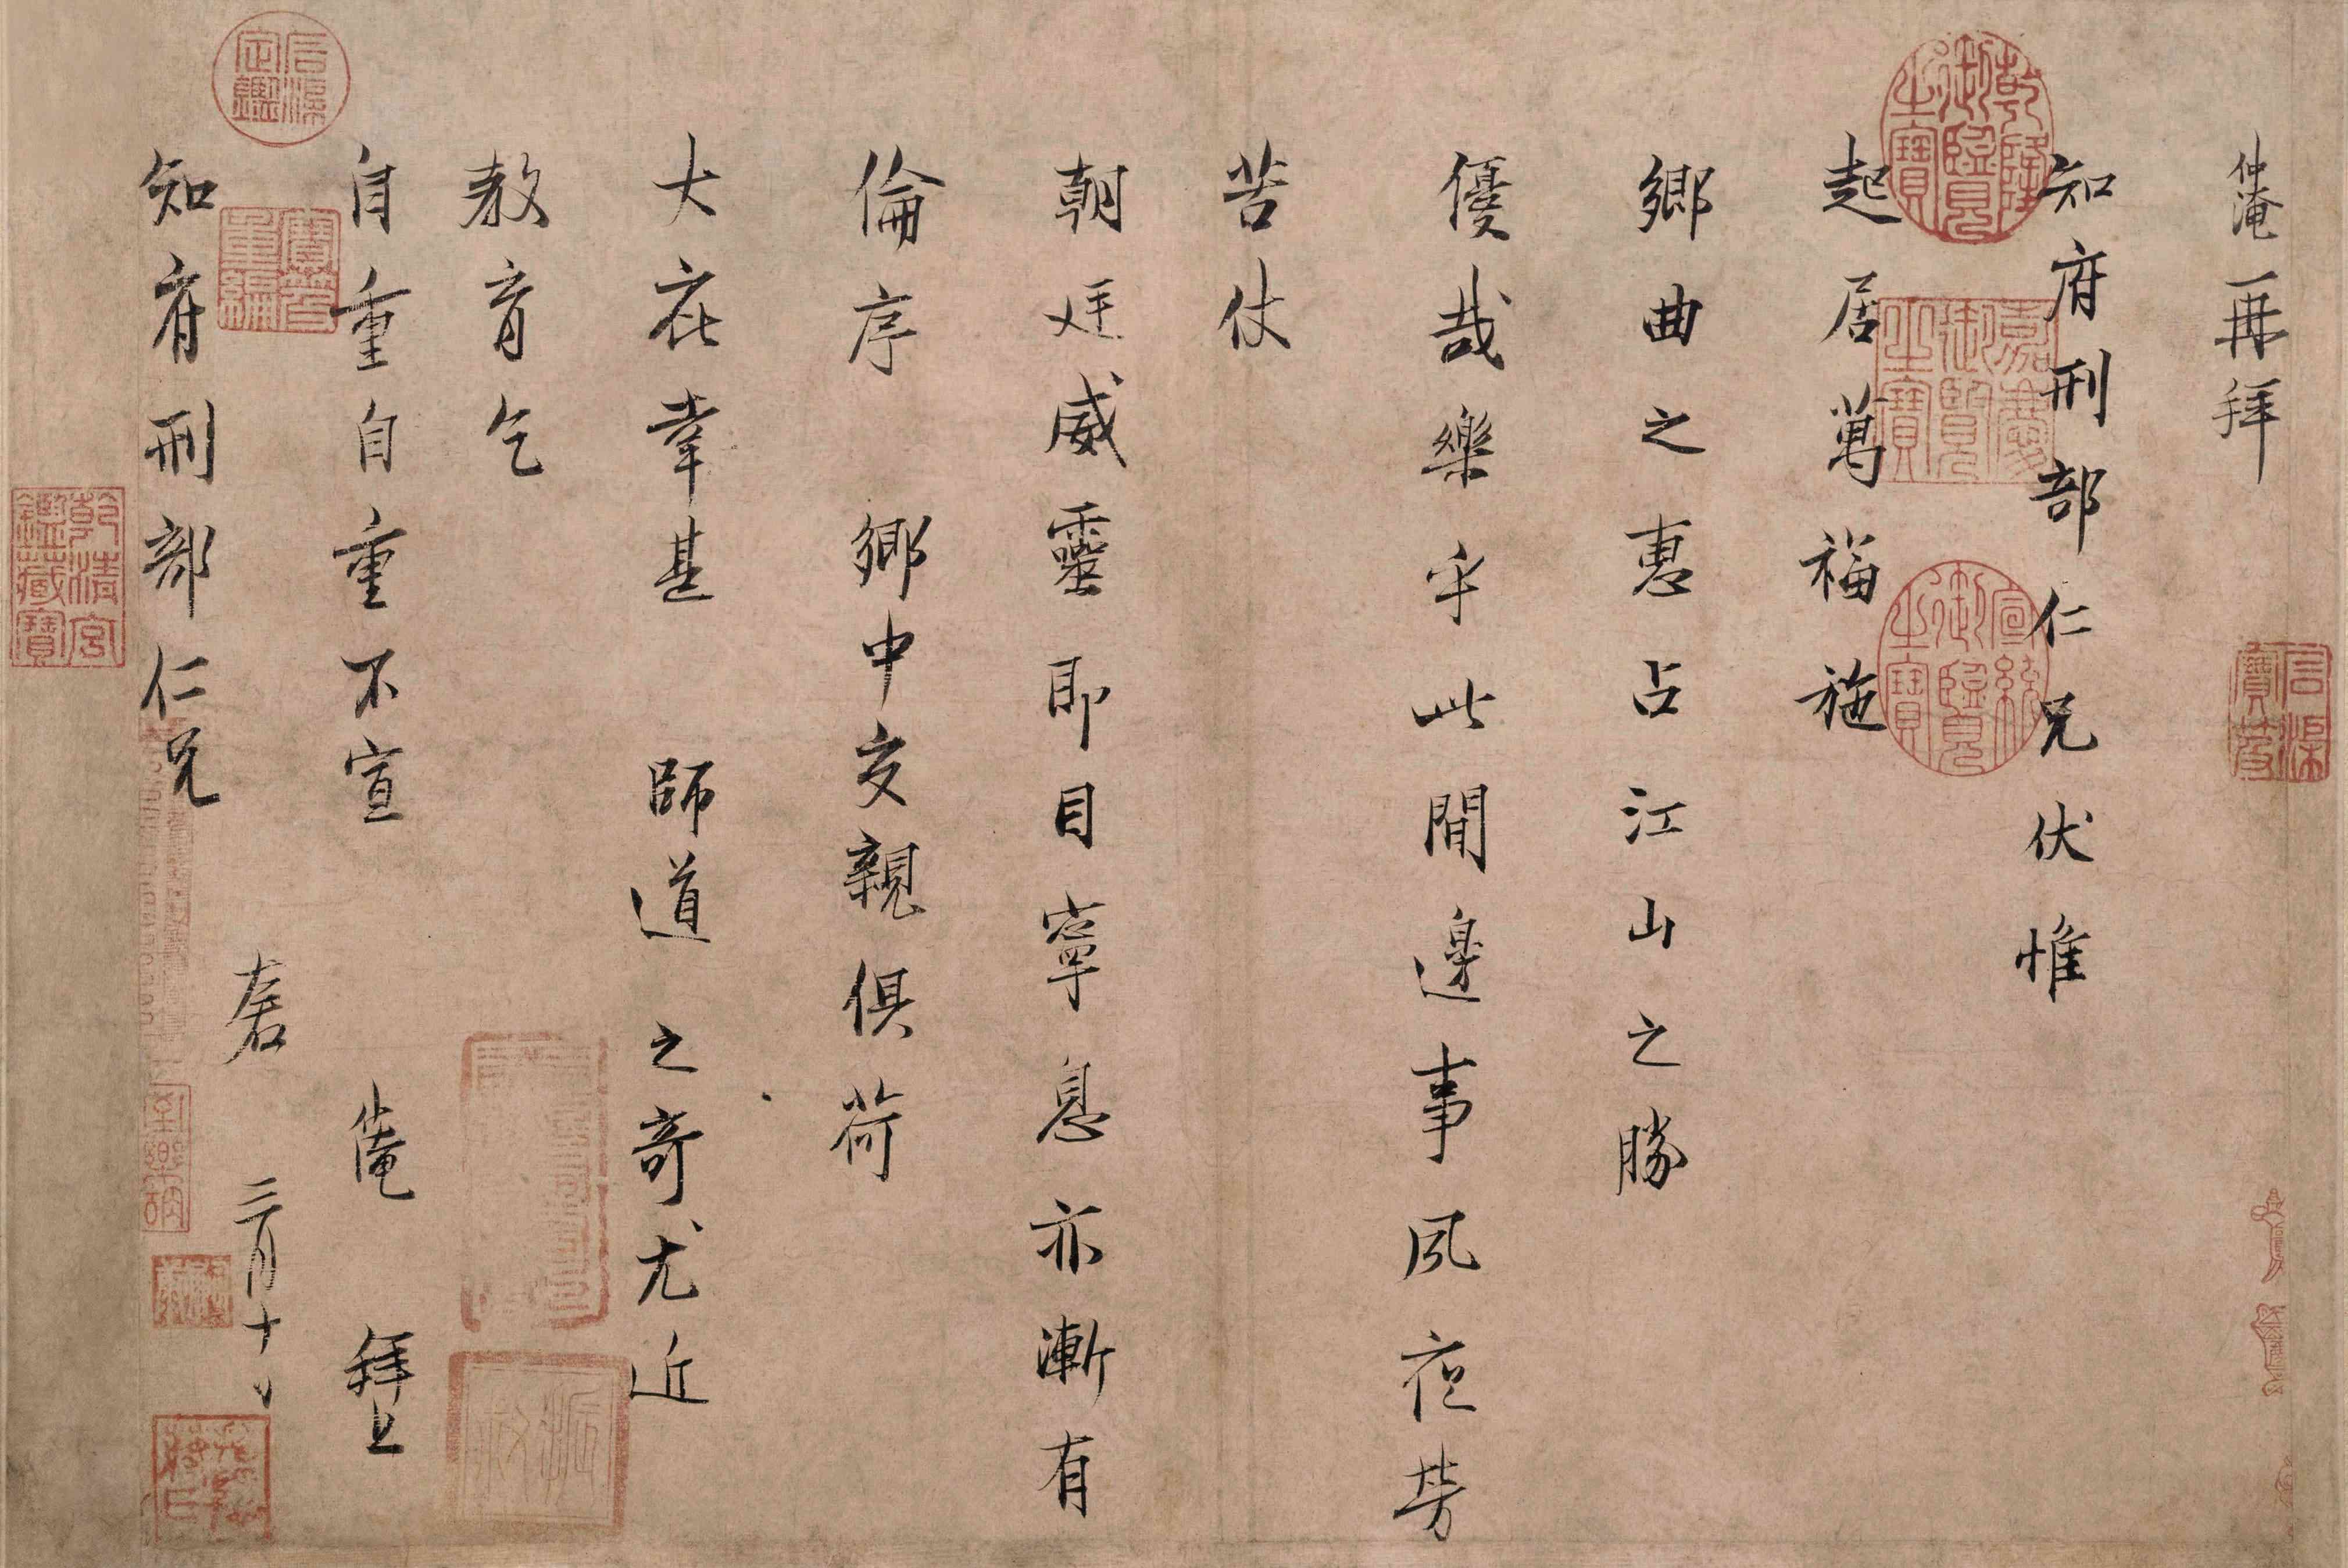 仲淹再拜
知府刑部仁兄伏惟
起居萬福施
鄉曲之惠占江山之勝
優哉樂乎此間邊事夙夜勞
苦仗
朝廷威靈即目寧息亦漸有
倫序 鄉中交親俱荷
大庇幸甚 師道之奇尤近
教育乞
自重自重不宣 仲淹 拜上
知府刑部仁兄
三月十
乾隆御覽之寶
嘉慶御覽之寶
宣統御覽之寶
石渠寶笈
石渠定鑑
寶笈重編
乾清宮鑑藏寶